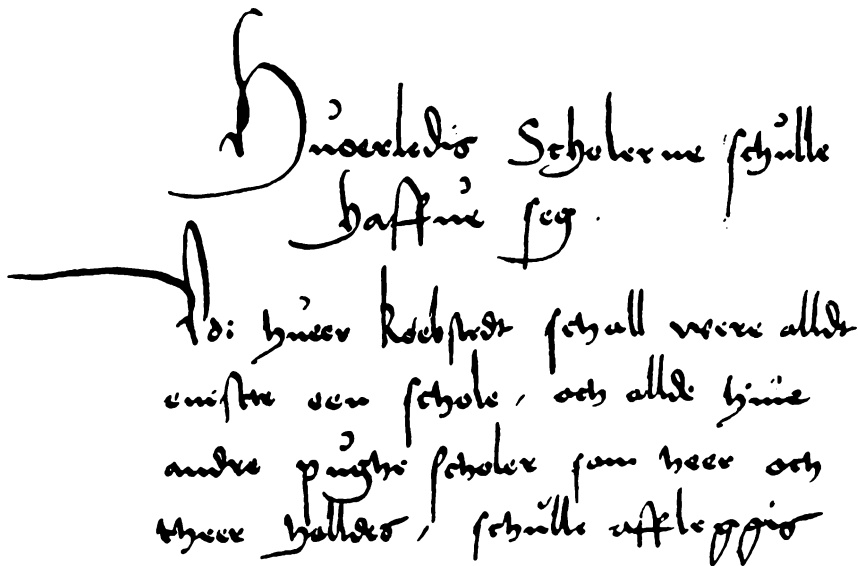 Huoerledis Scholerne schulle
haffue seg.
Udi hueer køebstedt schall were alldt
eniste een schole, och allde hine
andre pughe scholer som heer och
theer holldes, schulle affleggis